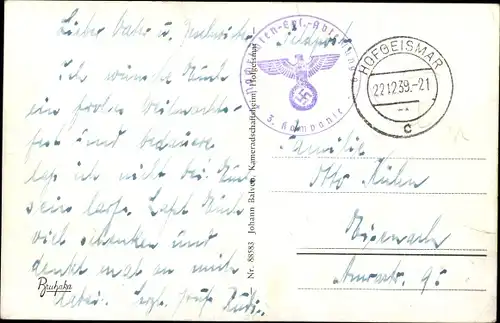 Lieber Vater u. Geschwister
Ich wünsche Euch
ein frohes Weihnachts-
fest und bedaure
daß ich nicht bei Euch
sein darf. Laßt Euch
viel schenken und
denkt mal an mich
dabei. Hrzl. Gruß Rudi.
Bruhaka
Nr. 88583 Johann Balven, Kameradschaftsheim Hofgeismar
Feldpost
3. Kompanie
HOFGEISMAR
22.12.39.-21
c
Familie
Otto Kühn
Eisenach